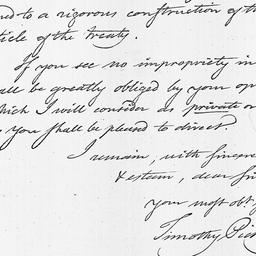 ed to a rigorous construction of th
ticle of the treaty.
If you see no impropriety in
all be greatly obliged by your op
which I will consider as private or
s you shall be pleased to direct.
I remain, with sincere
& esteem, dear sir
your most obt.
Timothy Pic